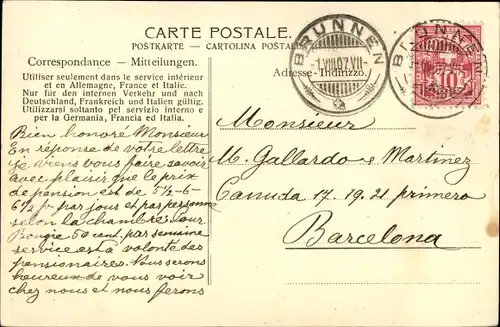 CARTE POSTALE.
POSTKARTE — CARTOLINA POSTALE
Correspondance — Mitteilungen.
Adresse-Indirizzo.
Utiliser seulement dans le service intérieur
et en Allemagne, France et Italie.
Nur für den internen Verkehr und nach
Deutschland, Frankreich und Italien gültig.
Utilizzarsi soltanto pel servizio interno e
per la Germania, Francia ed Italia.
BRUNNEN
1.VIII.07.VII-
BRUNNEN
10
Bien honoré Monsieur
En réponse de votre lettre
je viens vous faire savoir
avec plaisir que le prix
de pension est de 5½-6-
6½ fr par jour et par personne
selon la chambre. Pour
Bougie 50 cent. par semaine
service est à volonté des
pensionaires. Nous serons
heureux de vous voir
chez nous et nous ferons
Monsieur
M. Gallardo e Martinez
Canuda 17. 19. 21 primero
Barcelona